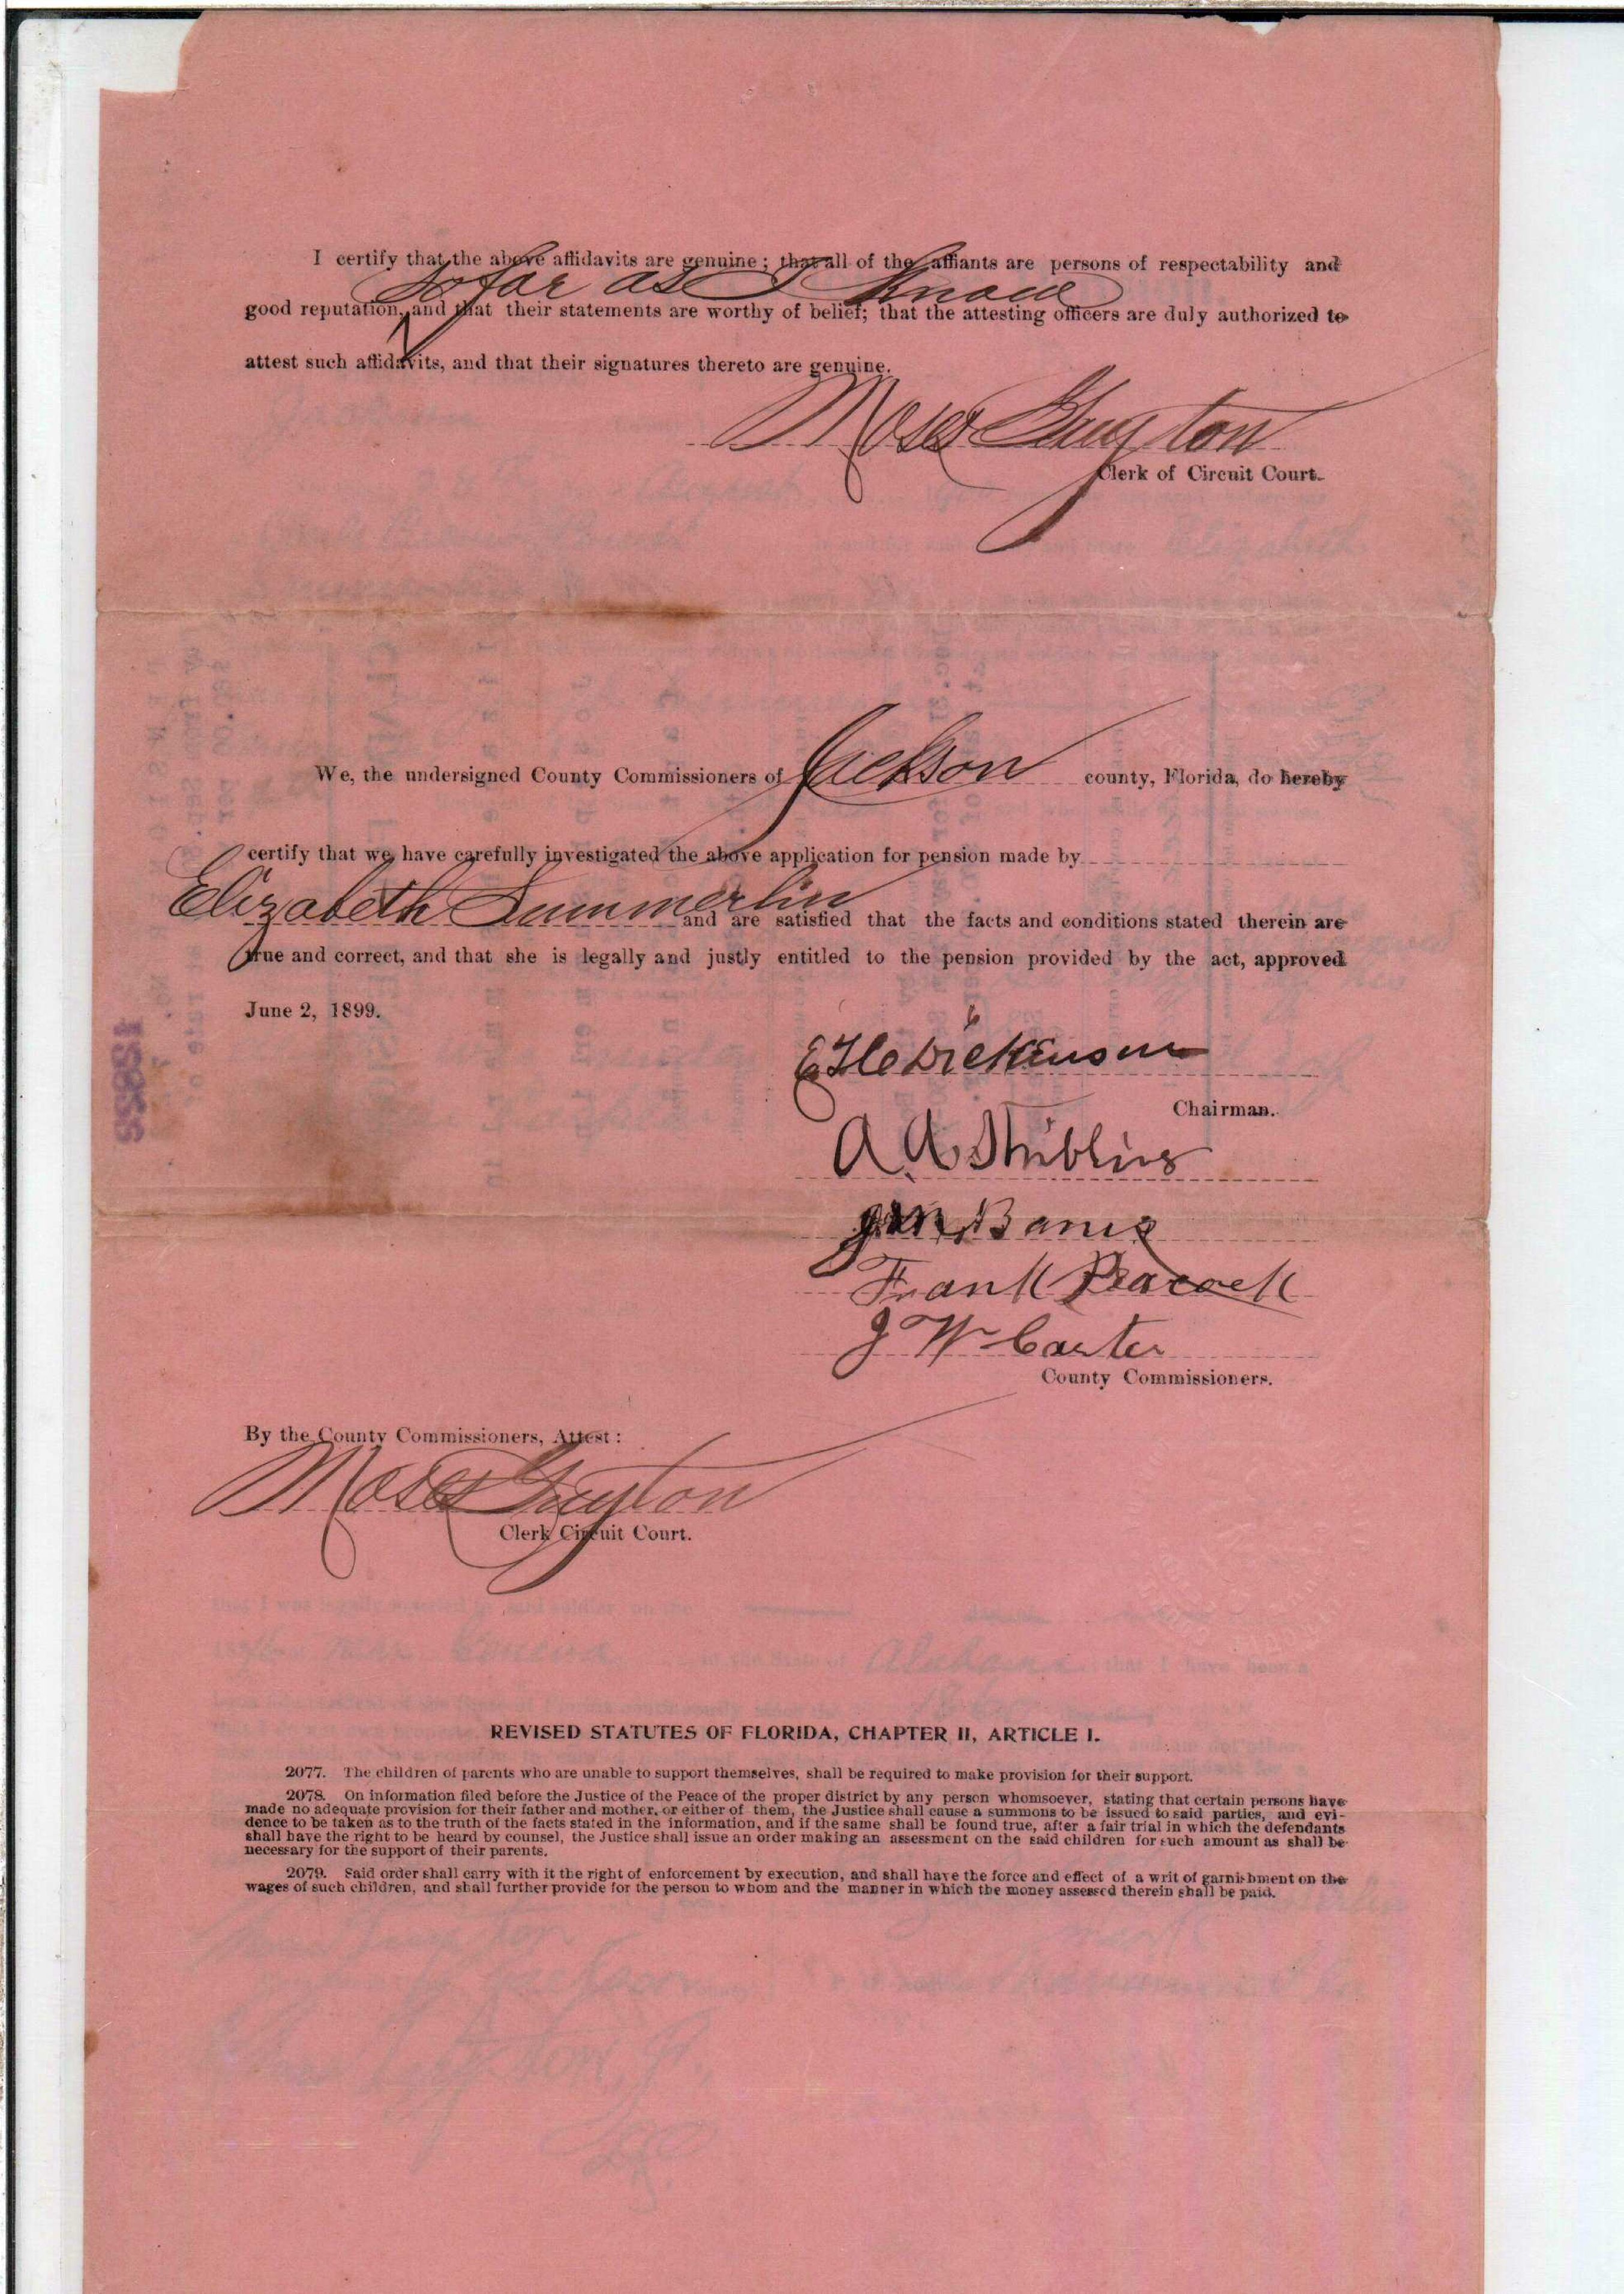 I certify that the above affidavits are genuine; that all of the affiants are persons of respectability and
so far as I know
good reputation, and that their statements are worthy of belief; that the attesting officers are duly authorized to
attest such affidavits, and that their signatures thereto are genuine.
Moses Guyton
Clerk of Circuit Court.
We, the undersigned County Commissioners of Jackson county, Florida, do hereby
certify that we have carefully investigated the above application for pension made by
Elizabeth Summerlin and are satisfied that the facts and conditions stated therein are
true and correct, and that she is legally and justly entitled to the pension provided by the act, approved
June 2, 1899.
Dickenson
Chairman.
A A Stribling
Frank Peacock
J W Carter
County Commissioners.
By the County Commissioners, Attest:
Moses Guyton
Clerk Circuit Court.
REVISED STATUTES OF FLORIDA, CHAPTER II, ARTICLE I.
2077. The children of parents who are unable to support themselves, shall be required to make provision for their support.
2078. On information filed before the Justice of the Peace of the proper district by any person whomsoever, stating that certain persons have
made no adequate provision for their father and mother, or either of them, the Justice shall cause a summons to be issued to said parties, and evi-
dence to be taken as to the truth of the facts stated in the information, and if the same shall be found true, after a fair trial in which the defendants
shall have the right to be heard by counsel, the Justice shall issue an order making an assessment on the said children for such amount as shall be
necessary for the support of their parents.
2079. Said order shall carry with it the right of enforcement by execution, and shall have the force and effect of a writ of garnishment on the
wages of such children, and shall further provide for the person to whom and the manner in which the money assessed therein shall be paid.